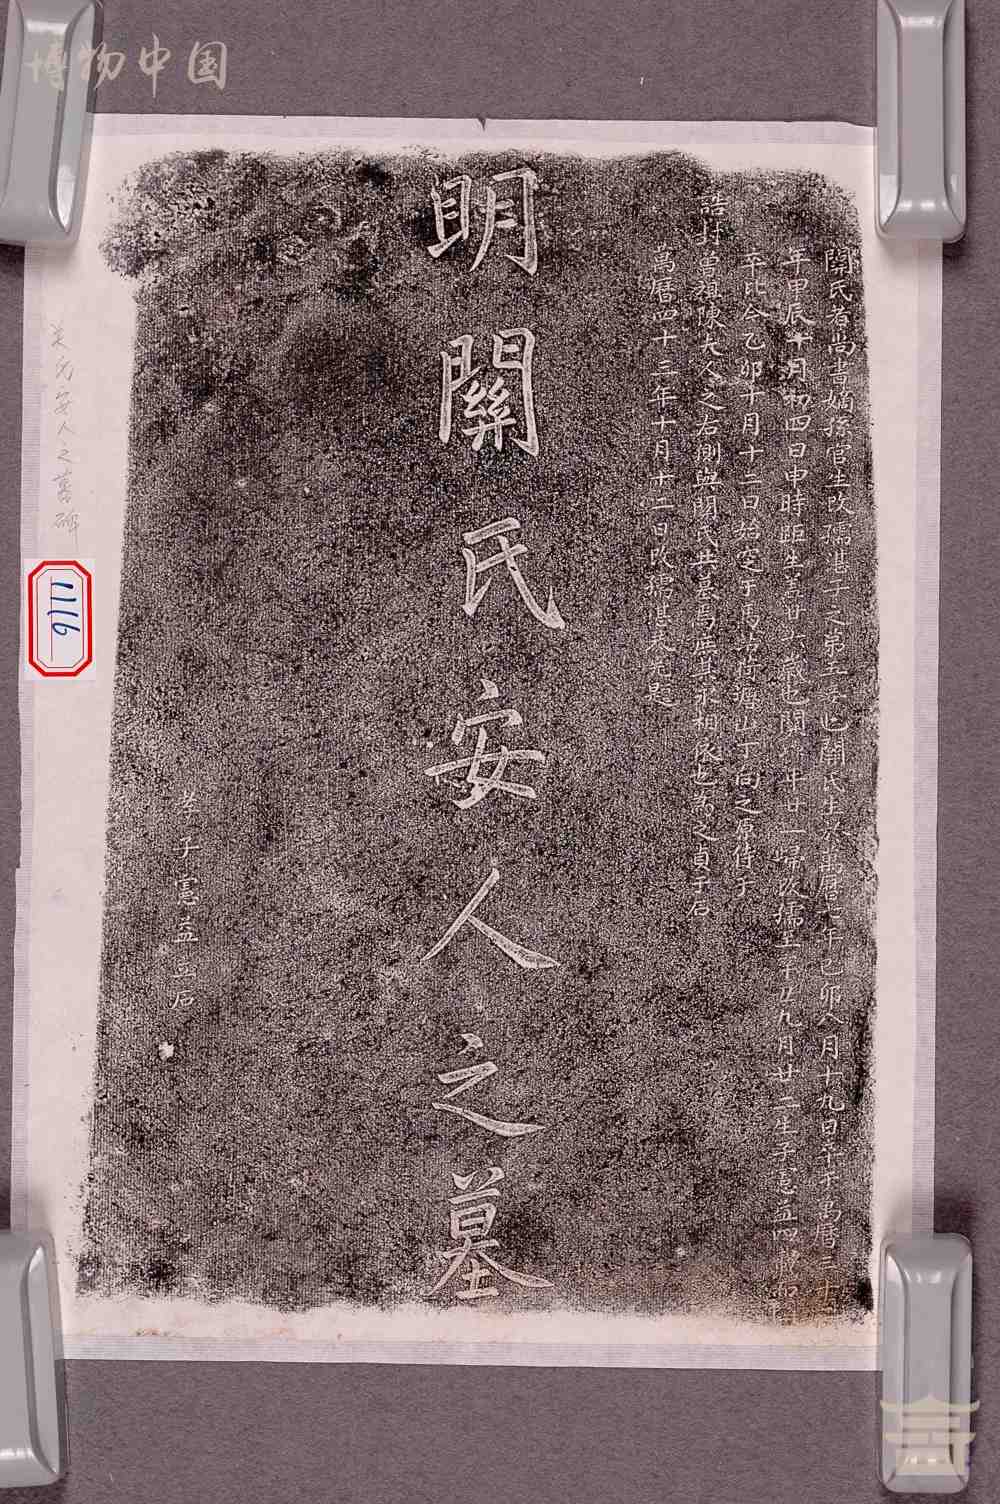 博物中国
關氏者尚書嫡孫官生改孺湛子之第五安也關氏生於萬曆七年己卯八月十九日卒于萬曆三十
年甲辰十月初四日申時距生蓋廿六歲也關年廿一歸改孺至卒九月廿二生子憲益四歲而
卒比今乙卯十月十二日始定于山丁向之原待于
誥封曾祖陳夫人之右側與關氏共墓焉庶其永相依也為之貞于石
萬曆四十三年十月十二日改孺湛表先題
明關氏安人之墓
孝子憲益立石
关氏安人之墓碑
1116